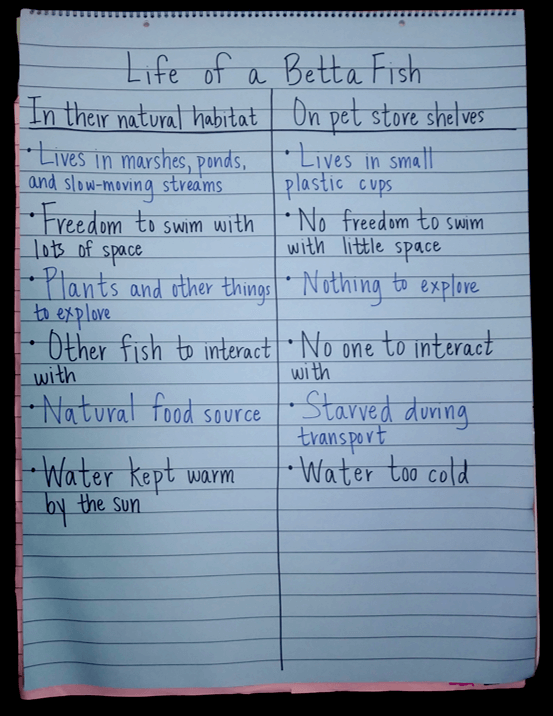 Life of a Betta Fish
In their natural habitat
• Lives in marshes, ponds,
and slow-moving streams
• Freedom to swim with
lots of space
• Plants and other things
to explore
• Other fish to interact
with
• Natural food source
• Water kept warm
by the sun
On pet store shelves
• Lives in small
plastic cups
• No freedom to swim
with little space
• Nothing to explore
• No one to interact
with
• Starved during
transport
• Water too cold